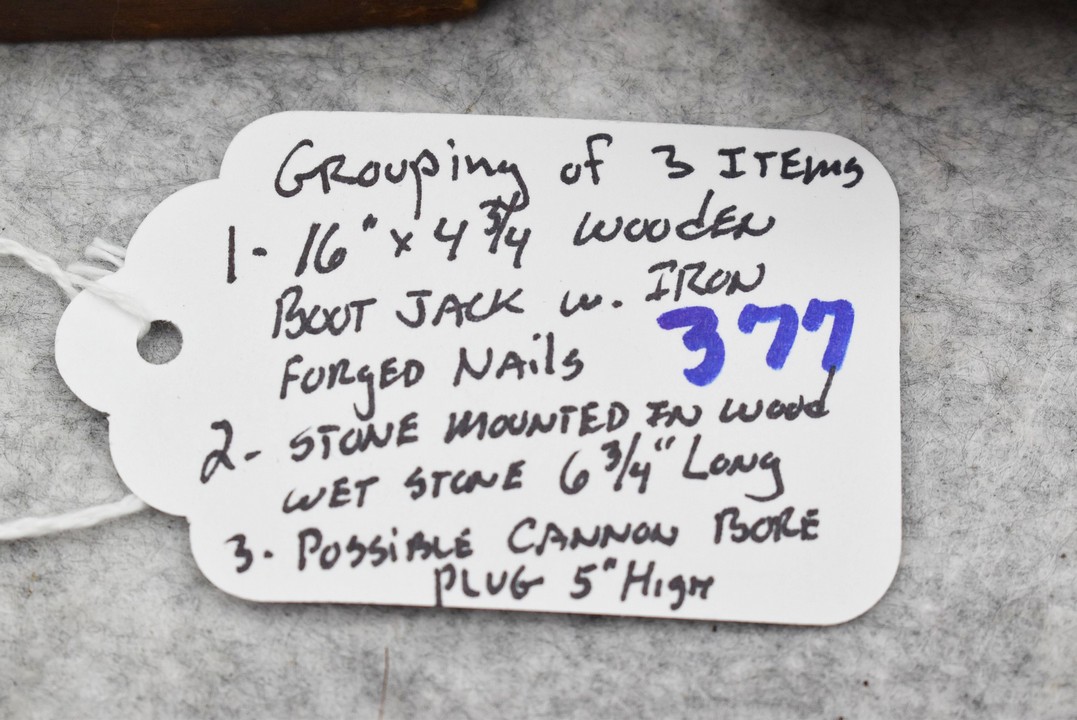 Grouping of 3 ITEMS
1- 16" x 4 3/4 WOODEN
BOOT JACK w. IRON
FORGED NAils
377
2- STONE MOUNTED IN WOOD
WET STONE 6 3/4" LONG
3. POSSiBLE CANNON BORE
PLUG 5" HIGH